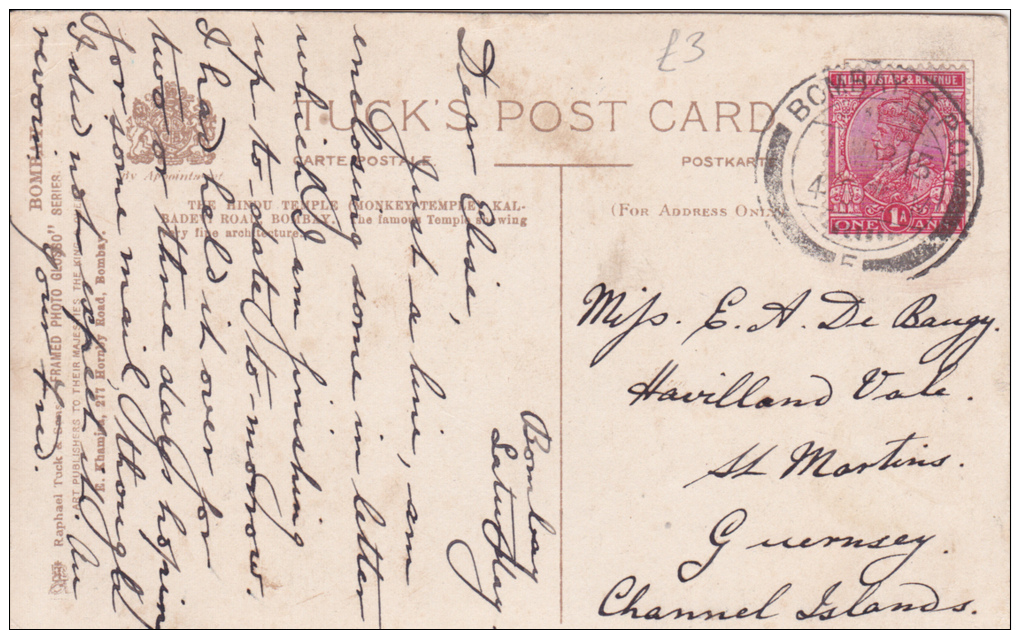 £3
TUCK'S POST CARD
CARTE POSTALE.
POSTKARTE
By Appointment.
(FOR ADDRESS ONLY
THE HINDU TEMPLE (MONKEY TEMPLE) KAL-
BADEVI ROAD, BOMBAY. The famous Temple showing
very fine architecture.
INDIA POSTAGE & REVENUE
1A
ONE ANNA
BOMBAY G.P.O.
Miss. E. A. De Baugy.
Havilland Vale.
St Martins.
Guernsey.
Channel Islands.
Bombay
Saturday
Dear Elsie,
Just a line, am
enclosing some in letter
which I am finishing
up to-date to-morrow.
I have held it over for
two or three days hoping
for some mail, though
I did not expect it. Au
revoir. Yours
BOMBAY
Raphael Tuck & Sons "FRAMED PHOTO GLOSSO" SERIES.
ART PUBLISHERS TO THEIR MAJESTIES THE KING
E. Khamisa, 277 Hornby Road, Bombay.